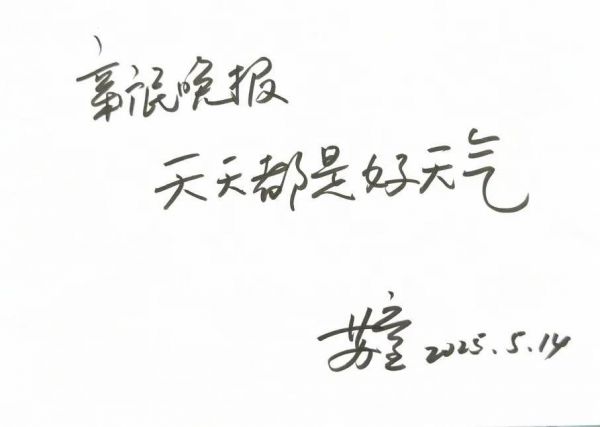 新民晚报
天天都是好天气
苏童 2025.5.14